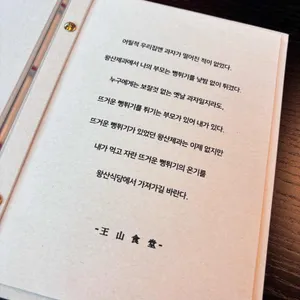 어릴적 우리집엔 과자가 떨어진 적이 없었다.
왕산제과에서 나의 부모는 뻥튀기를 낮밤 없이 튀겼다.
누구에게는 보잘것 없는 옛날 과자일지라도,
뜨거운 뻥튀기를 튀기는 부모가 있어 내가 있다.
뜨거운 뻥튀기가 있었던 왕산제과는 이제 없지만
내가 먹고 자란 뜨거운 뻥튀기의 온기를
왕산식당에서 가져가길 바란다.
-王 山 食 堂-